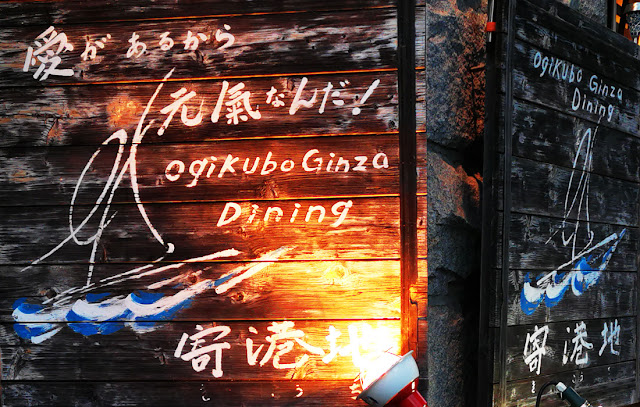 愛があるから
元氣なんだ!
OgiKubo Ginza
Dining
寄港地
OgiKubo Ginza
Dining
寄港地